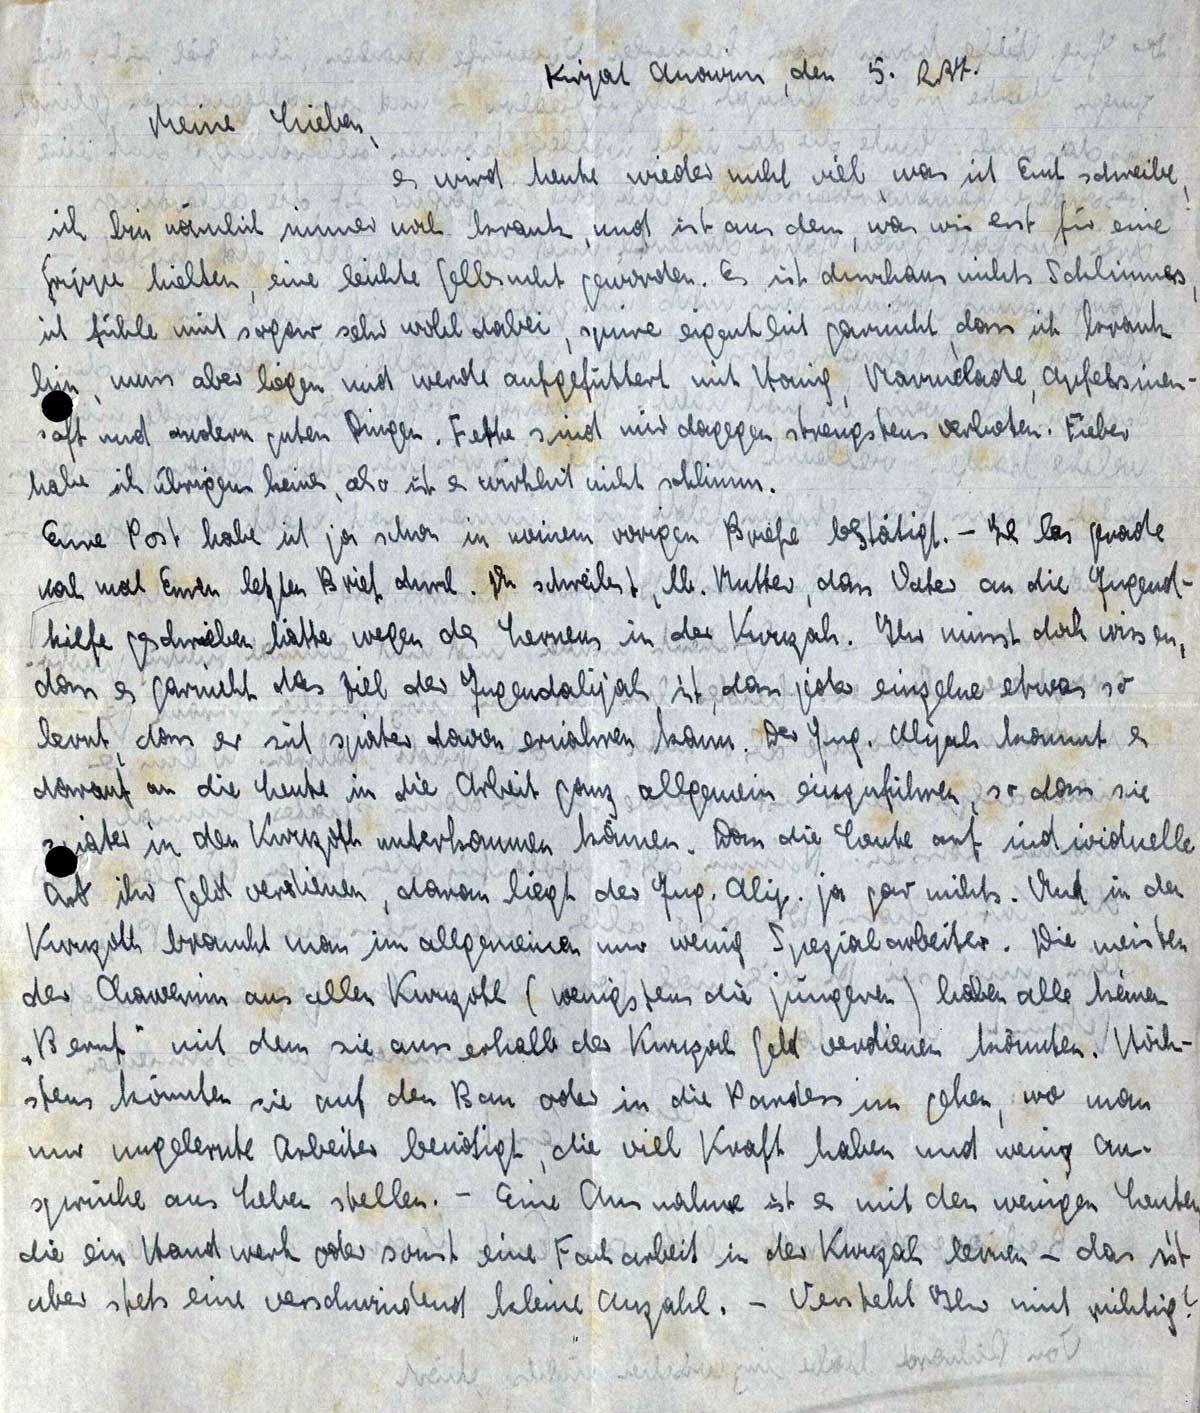 Kirjat Anawim, den 5.
Meine Lieben,
es wird heute wieder nicht viel, was ich Euch schreibe,
ich bin nämlich immer noch krank, und ist aus dem, was wir erst für eine
Grippe hielten, eine leichte Gelbsucht geworden. Es ist durchaus nichts Schlimmes,
ich fühle mich sogar sehr wohl dabei, spüre eigentlich garnicht, dass ich krank
bin, muss aber liegen und werde aufgefüttert mit Honig, Marmelade, Apfelsinen-
saft und andern guten Dingen. Fette sind mir dagegen strengstens verboten. Fieber
habe ich übrigens keines, also ist es wirklich nicht schlimm.
Eure Post habe ich ja schon in meinem vorigen Briefe bestätigt. – Ich las gerade
noch mal Euren letzten Brief durch. Du schreibst, lb. Mutter, dass Vater an die Jugend-
hilfe geschrieben hätte wegen des Lernens in der Kwuzah. Ihr müsst doch wissen,
dass es garnicht das Ziel der Jugendalijah ist, dass jeder einzelne etwas so
lernt, dass er sich später davon ernähren kann. Der Jug. Alijah kommt es
darauf an die Leute in die Arbeit ganz allgemein einzuführen, so dass sie
später in den Kwuzoth unterkommen können. Dass die Leute auf individuelle
Art ihr Geld verdienen, daran liegt der Jug. Alij. ja gar nichts. Und in den
Kwuzoth braucht man im allgemeinen nur wenig Spezialarbeiter. Die meisten
der Chawerim aus allen Kwuzoth (wenigstens die jüngeren) haben alle keinen
„Beruf" mit dem sie ausserhalb der Kwuzah Geld verdienen könnten. Höch-
stens könnten sie auf den Bau oder in die Pardessim gehen, wo man
nur ungelernte Arbeiter benötigt, die viel Kraft haben und wenig An-
sprüche aus Leben stellen. – Eine Ausnahme ist es mit den wenigen Leuten
die ein Handwerk oder sonst eine Facharbeit in der Kwuzah lernen – das ist
aber stets eine verschwindend kleine Anzahl. – Versteht Ihr mich richtig?